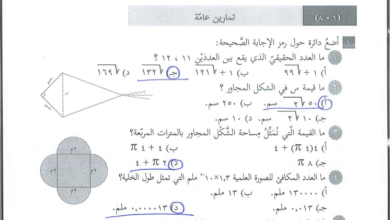 (١ - ٨)
تمارين عامّة
أضعُ دائرة حول رمز الإجابة الصَّحيحة:
ما العدد الحقيقيّ الذي يقع بين العدديْن ١١ ، ١٢ ؟
أ) ١ + √٩٩ ب) ١ + √١٢١ جـ) √١٣٢ د) √١٦٩
ما قيمة س في الشكل المجاور ؟
سم. ب) ٢٥٠ سم.
د) ١٠ سم.
ما القيمة الّتي تُمثِّلُ مِساحة الشَّكْل المجاور بالمترات المربّعة؟
أ) ٤(٤ + π) ب) ٤ + ٤ π
جـ) ٨ π د) ٤ + ٢ π
ما العدد المكافئ للصورة العلمية ملم التي تمثل طول الخلية؟
أ) ١٣٠٠٠٠ ملم. ب) ١٣ ملم.
جـ) ٠,١٣ ملم. د) ٠,٠٠٠٠١٣ ملم.
٢م
٢م
٢م
٢م